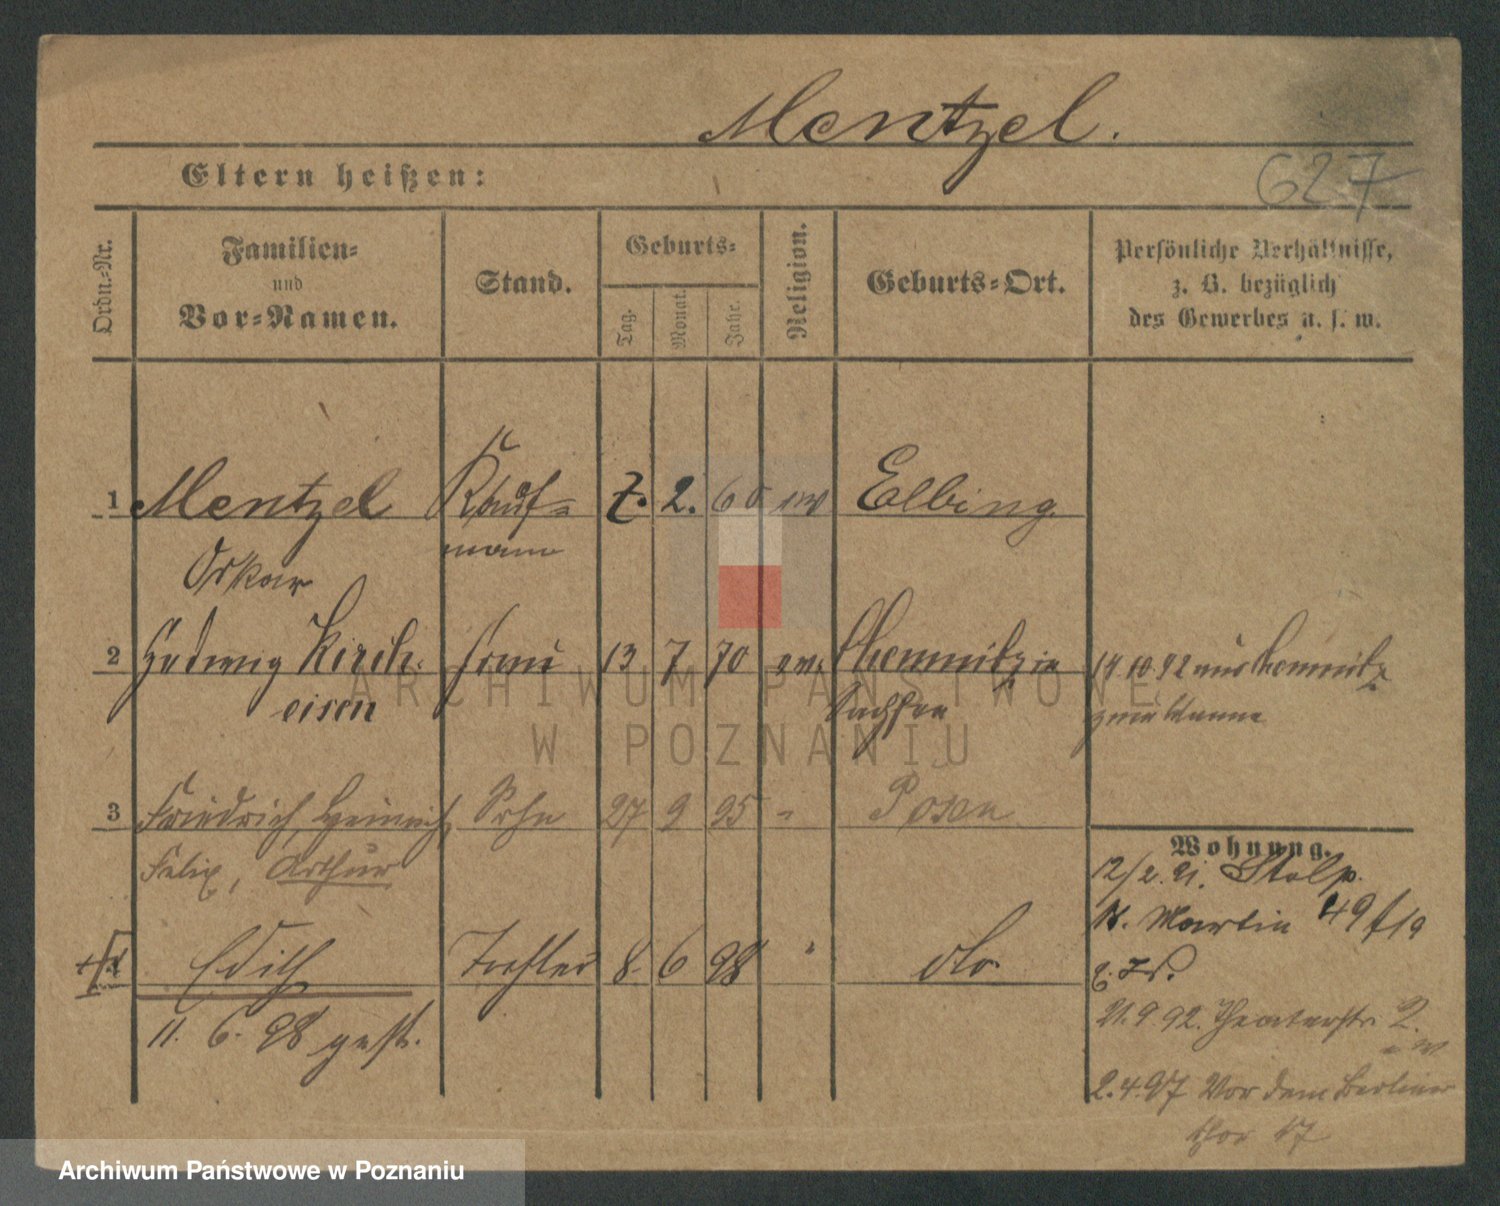 Mentzel.
Eltern heißen:
627
Ordn.-Nr.
Familien- und Vor-Namen.
Stand.
Geburts-
Tag.
Monat.
Jahr.
Religion.
Geburts-Ort.
Persönliche Verhältnisse,
z. B. bezüglich
des Gewerbes u. s. w.
1 Mentzel Kauf- 7. 2. 60 ew Elbing.
Oskar mann
2 Hedwig Kirch- Frau 13 7 70 ew. Chemnitz in 14.10.92 aus Chemnitz
eisen Sachsen
3 Friedrich, Heinrich, Sohn 27 2 95 " Posen
Felix, Arthur
Wohnung.
12/2.91. Stolp.
St. Martin 49
4 Edith Tochter 8. 6 98 " do.
11. 6. 98 gest.
21.9.92. Theaterstr. 2.
2.4.97 Vor dem Berliner
Thor 17
ARCHIWUM PAŃSTWOWE
W POZNANIU
Archiwum Państwowe w Poznaniu